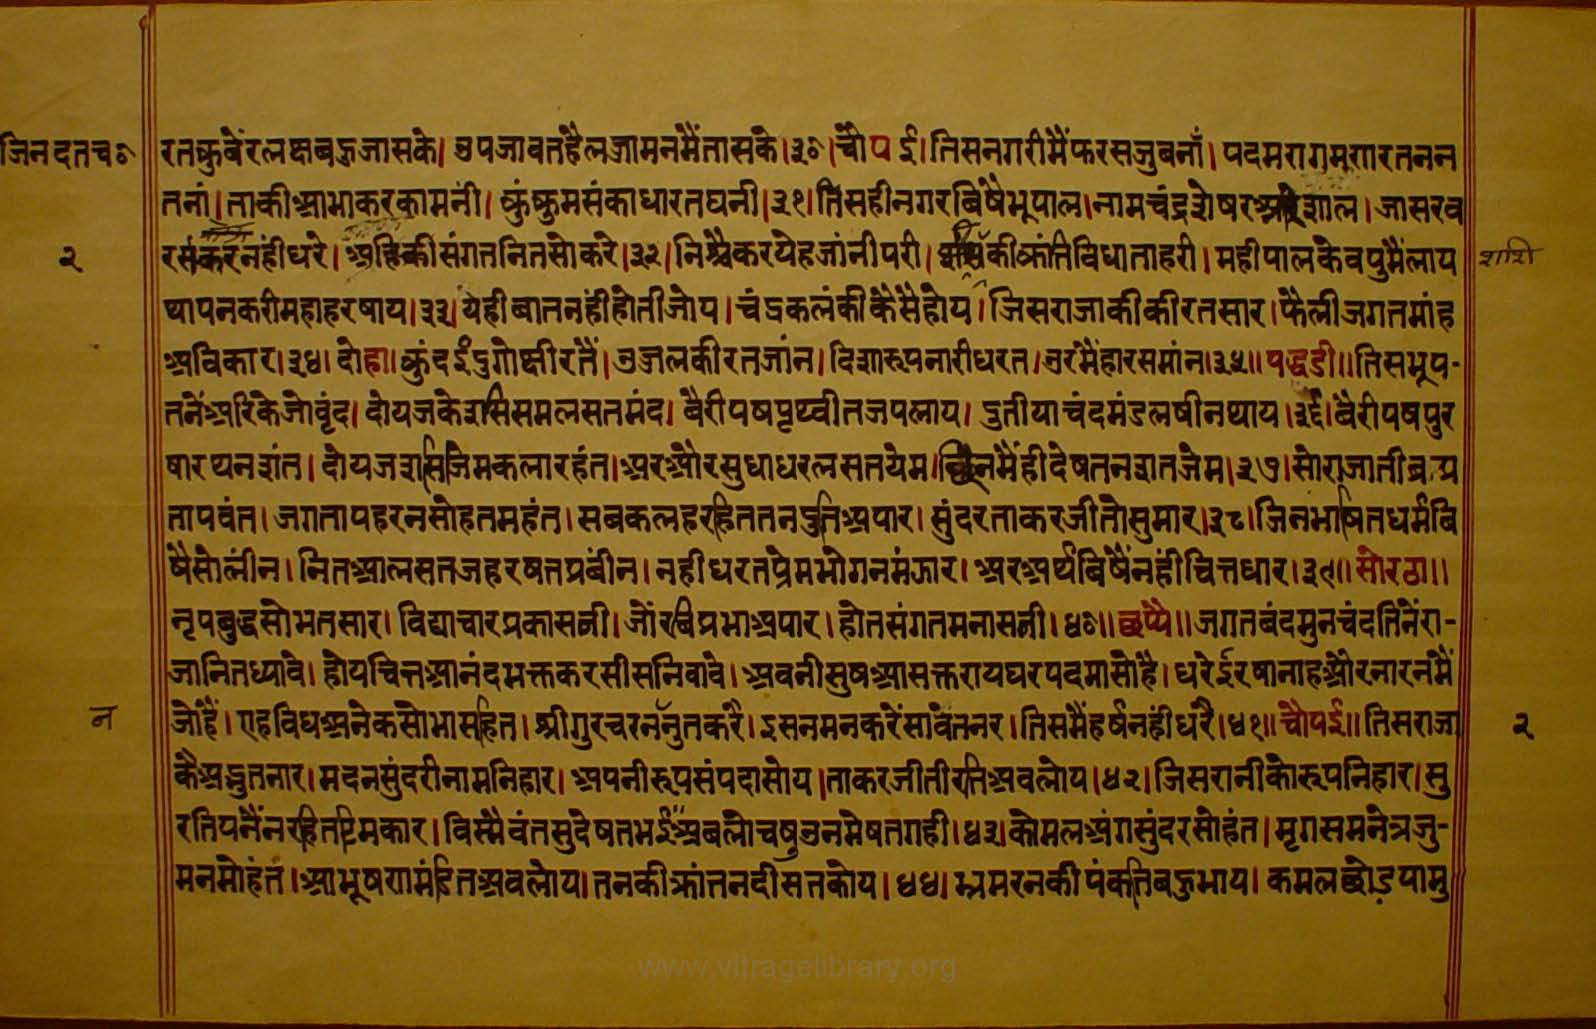 जिनदतच०
रतकुबेंरलक्षबहुजासके। उपजावतहैलजामनमैंतासके।३०।चौपई।तिसनगरीमैंफरसजुबनाँ।पदमरागमणरतनन
तनां।ताकीआभाकरकामनीं।कुंकुमसंकाधारतघनी।३१।तिसहीनगरबिषैभूपाल।नामचंद्रशेषर शाल।जासरव
२
रसंकरनहींधरे। कीसंगतनितसोकरे।३२।निश्चैकरयेहजांनीपरी। कीक्रांतिविधाताहरी।महीपालकेवपुमैंलाय
शशि
थापनकरीमहाहरषाय।३३।येहीबातनहींहोतीजोय।चंद्रकलंकीकैसेंहोय।जिसराजाकीकीरतसार।फैलीजगतमांह
अविकार।३४।दोहा।कुंदइंदुगोक्षीरतैं।उजलकीरतजांन।दिशारूपनारीधरत।उरमैंहारसमांन।३५॥पद्धडी॥तिसभूप-
तनेंअरिकेजोवृंद।दोयजकेशसिसमलसतमंद।बैरीपषपृथ्वीतजपलाय।दुतीयाचंदमंडलषीनथाय।३६।बैरीपषपुर
षारथनशंत।दोयजशसिजिमकलारहंत।अरऔरसुधाधरलसतयेम। मैंहीदेषतनशतजेम।३७।सोराजातीव्रप्र
तापवंत।जगतापहरनसोहतमहंत।सबकलहरहिततनदुतिअपार।सुंदरताकरजीतोसुमार।३८।जिनभाषितधर्मबि
षैसोलींन।नितआलसतजहरषतप्रबींन।नहीधरतप्रेमभोगनमंझार।अरअर्थबिषैंनहींचित्तधार।३९॥सोरठा॥
नृपबुद्धसोभतसार।विद्याचारप्रकासनी।जोंरबिप्रभाअपार।होतसंगतमनासनी।४०॥छप्पै॥जगतबंदमुनचंदतिनेंरा-
जानितध्यावे।होयचित्तआनंदभक्तकरसीसनिवावे।अवनीसुषआसक्तरायघरपदमासोहै।धरेईरषानाहऔरनारनमैं
न
जोहैं।एहविधअनेकसोभासहित।श्रीगुरचरननुतकरै।इसनमनकरेंसावंतनर।तिसमैंहर्षनहींधरै।४१॥चौपई॥तिसराजा
२
कैअद्भुतनार।मदनसुंदरीनामनिहार।अपनीरूपसंपदासोय।ताकरजीतीरतिअवलोय।४२।जिसरानीकोरूपनिहार।सु
रतियनैंनरहितटिमकार।विस्मैवंतसुदेषतभई।अबलोचषुउनमेषतगही।४३।कोमलअंगसुंदरसोहंत।मृगसमनेत्रजु-
मनमोहंत।आभूषणमंडितअवलोय।तनकीक्रांतनदीसतकोय।४४।भ्रमरनकीपंकतिबहुभाय।कमलछोडयामु
www.vitragelibrary.org